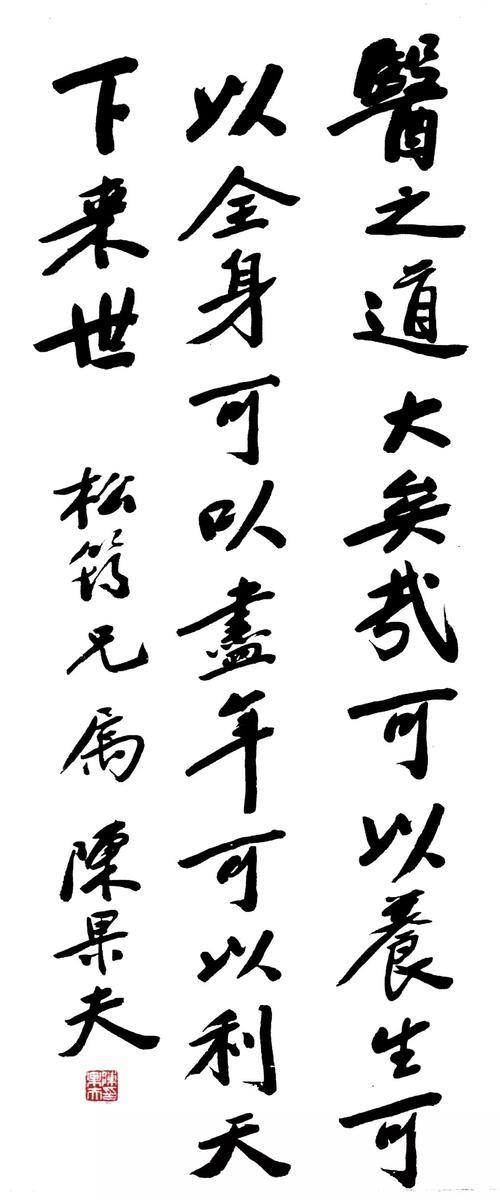 醫之道大矣哉可以養生可
以全身可以盡年可以利天
下来世 松筠兄属 陳果夫